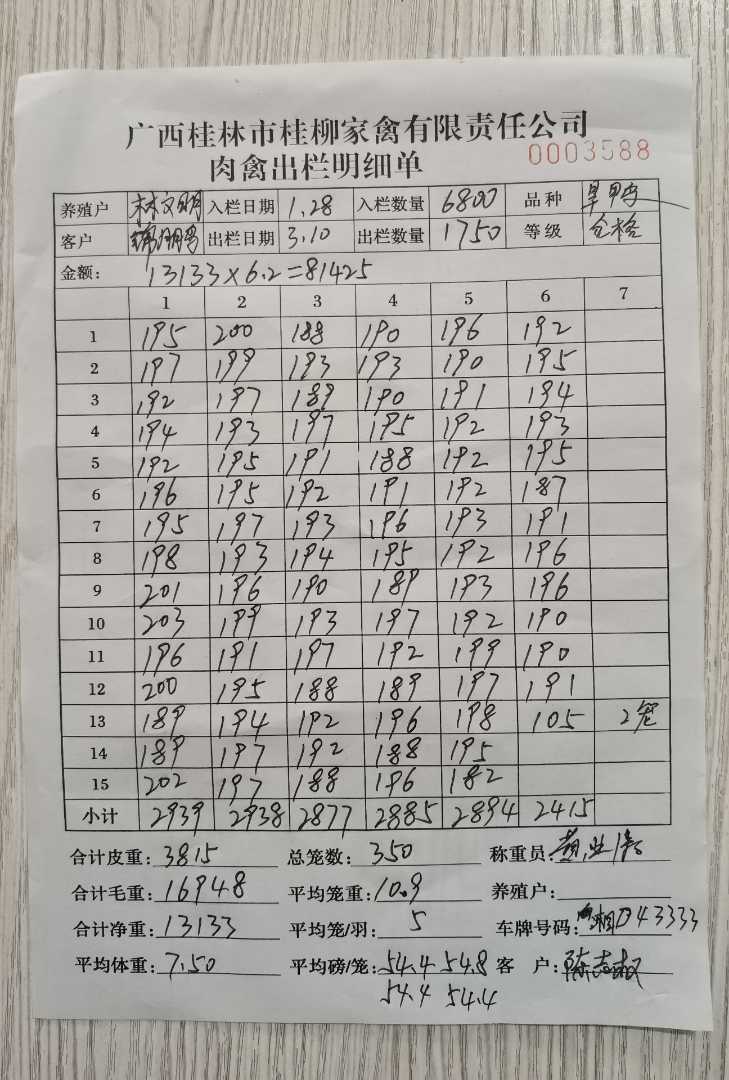 广西桂林市桂柳家禽有限责任公司
肉禽出栏明细单 0003588
养殖户 林文明 入栏日期 1.28 入栏数量 6800 品种
客户 出栏日期 3.10 出栏数量 1750 等级 合格
金额: 13133×6.2=81425
1 2 3 4 5 6 7
1 195 200 188 190 196 192
2 197 199 193 193 190 195
3 192 197 189 190 191 194
4 194 193 197 195 192 193
5 192 195 191 188 192 195
6 196 195 192 191 192 187
7 195 197 193 196 193 191
8 198 193 194 195 192 196
9 201 196 190 189 193 196
10 203 199 193 197 192 190
11 196 191 197 192 199 190
12 200 195 188 189 197 191
13 189 194 192 196 198 105 2笼
14 189 197 192 188 195
15 202 197 188 196 182
小计 2939 2938 2877 2885 2894 2415
合计皮重: 3815 总笼数: 350 称重员:
合计毛重: 16948 平均笼重: 10.9 养殖户:
合计净重: 13133 平均笼/羽: 5 车牌号码: 湘D43333
平均体重: 7.50 平均磅/笼: 54.4 54.8 客 户:
54.4 54.4